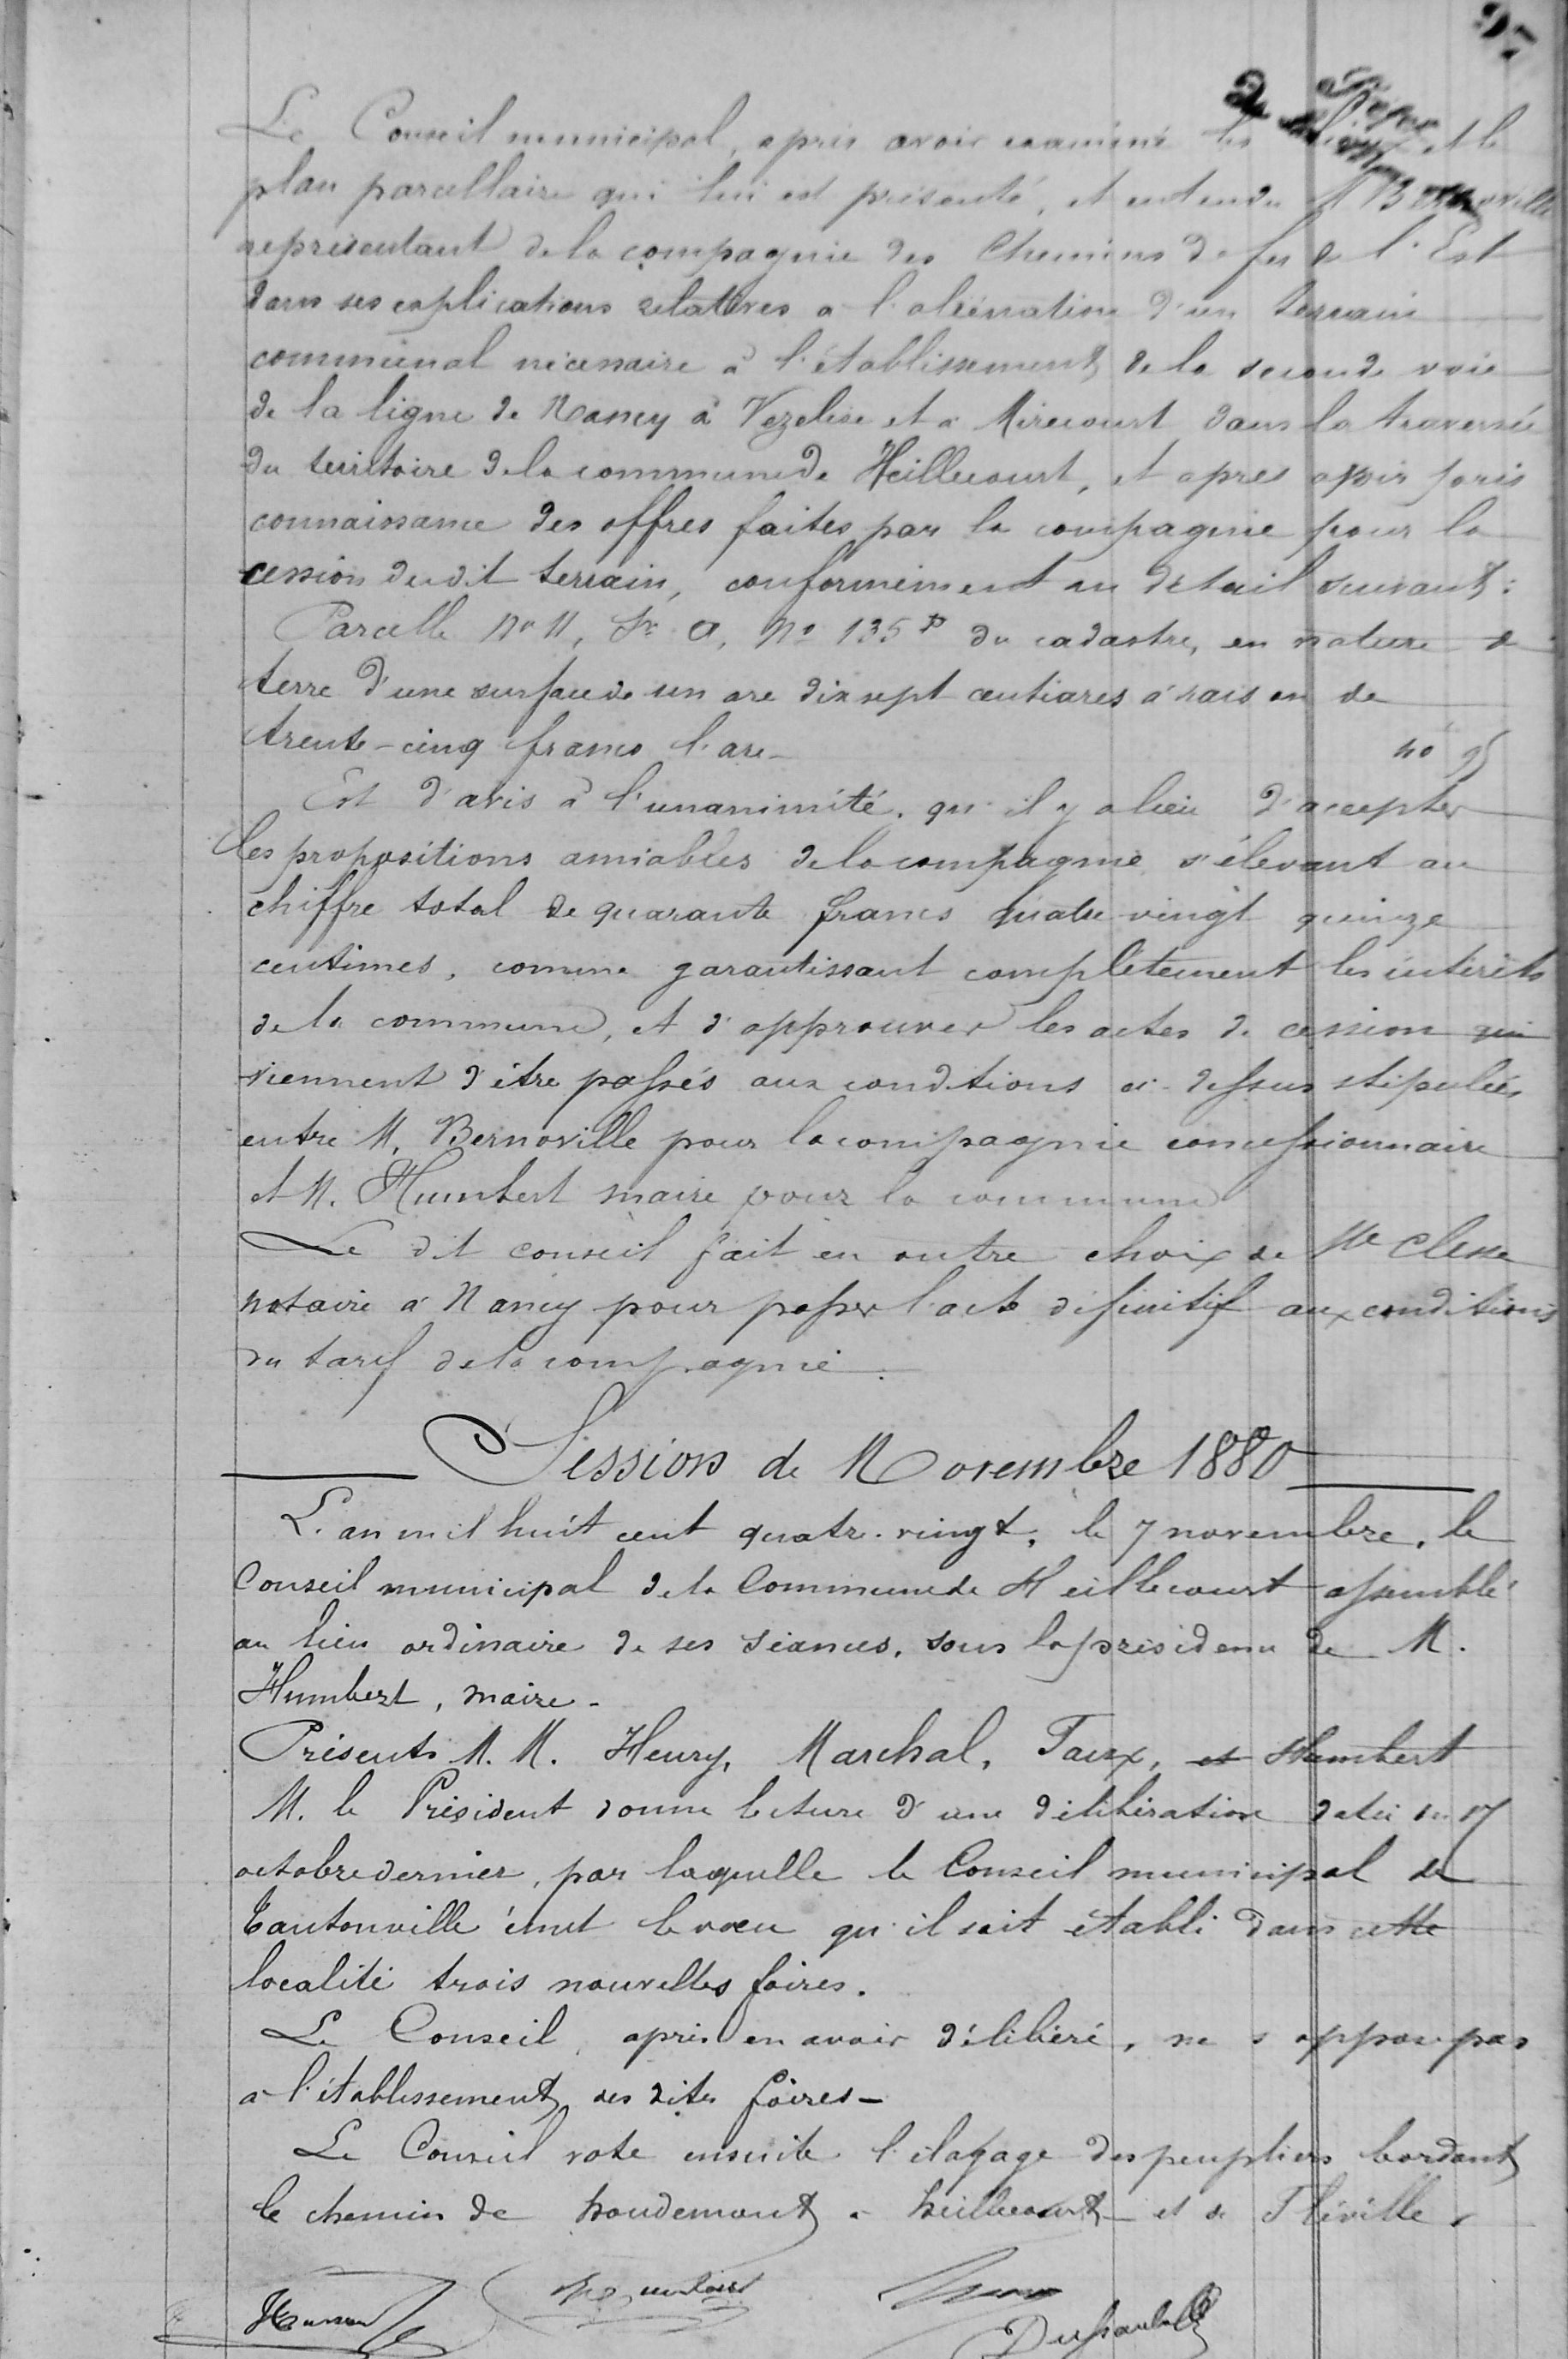 Le Conseil municipal, après avoir examiné les et le
plan parcellaire qui lui est présenté, et entendu M Bernoville
représentant de la compagnie des Chemins de fer de l'Est
dans ses explications relatives a l'aliénation d'un terrain
communal nécessaire à l'établissement de la seconde voie
de la ligne de Nancy à Vezelise et a Mirecourt dans la traversée
du territoire de la commune de Heillecourt, et apres avoir pris
connaissance des offres faites par la compagnie pour la
cession dudit terrain, conformément au détail suivant :
Parcelle No 11, Son a, No 135 p du cadastre, en nature de
terre d'une surface de un are dix sept centiares à raison de
trente-cinq francs l'are - 40 95
Est d'avis à l'unanimité, qu'il y a lieu d'accepter
les propositions amiables de la compagnie s'élevant au
chiffre total de quarante francs quatre vingt quinze
centimes, comme garantissant complètement les intérêts
de la commune, et d'approuver les actes de cession qui
viennent d'être passés aux conditions ci-dessus stipulées
entre M. Bernoville pour la compagnie concessionnaire
et M. Humbert maire pour la commune
Le dit conseil fait en outre choix de Me Clesse
notaire à Nancy pour passer l'acte définitif aux conditions
du tarif de la compagnie.
Session de Novembre 1880
L'an mil huit cent quatre-vingt, le 7 novembre, le
Conseil municipal de la Commune de Heillecourt assemblé
au lieu ordinaire de ses séances, sous la présidence de M.
Humbert, maire -
Présents M. M. Henry, Marchal, Faux, et Humbert
M. le Président donne lecture d'une délibération datée du 17
octobre dernier, par laquelle le Conseil municipal de
Tantonville émet le vœu qu'il soit établi dans cette
localité trois nouvelles foires.
Le Conseil, après en avoir délibéré, ne s'oppose pas
a l'établissement des dites foires -
Le Conseil vote ensuite l'élagage des peupliers bordant
le chemin de houdemont a heillecourt et de Fléville.